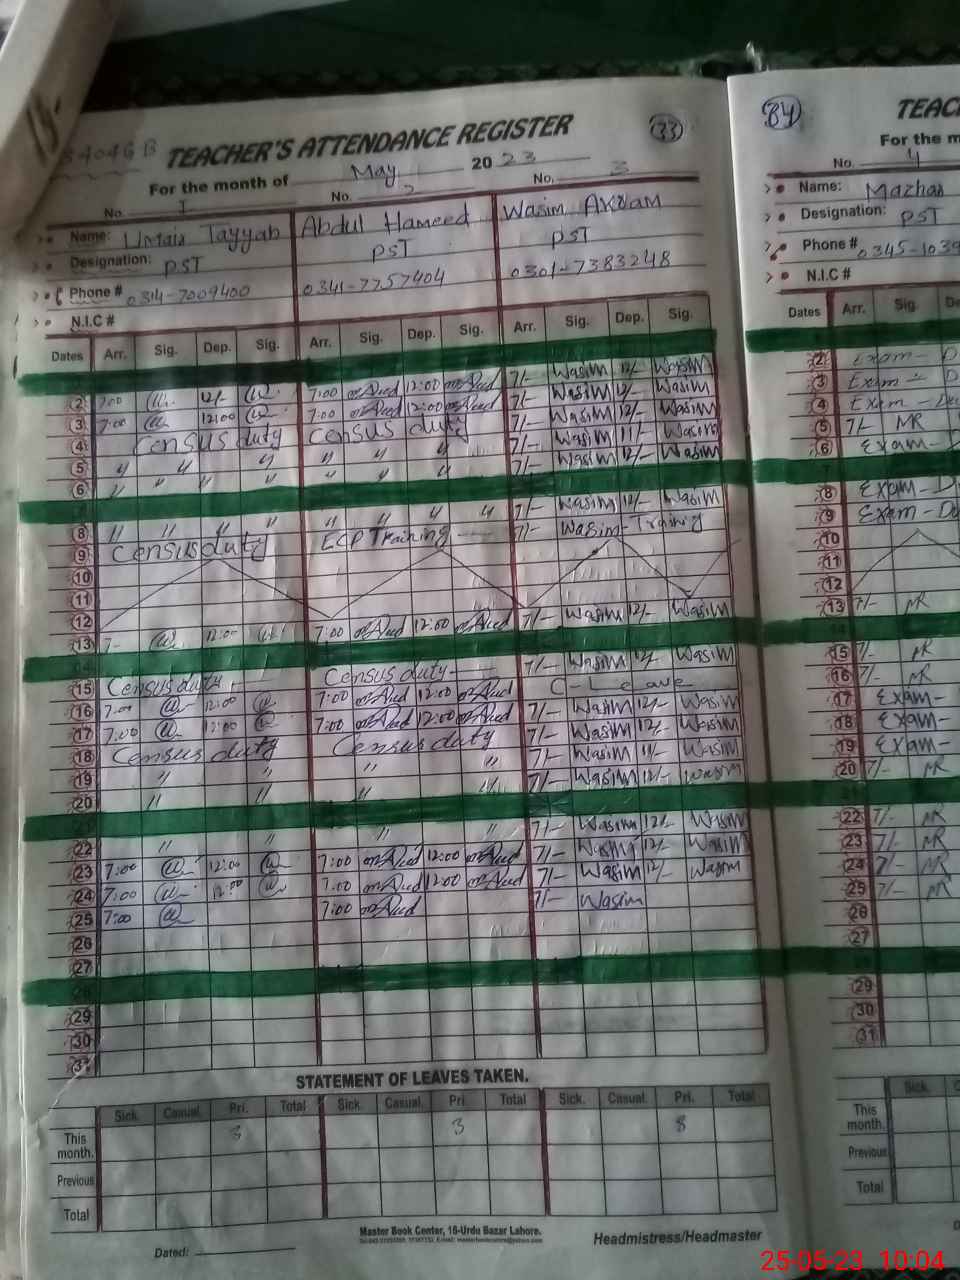 34046 B TEACHER'S ATTENDANCE REGISTER (33)
For the month of May 2023
No. 1 No. 2 No. 3
Name: Umair Tayyab Abdul Hameed Wasim Akram
Designation: PST PST PST
Phone # 0314-7009400 0341-7757404 0301-7383248
N.I.C #
Dates Arr. Sig. Dep. Sig. Arr. Sig. Dep. Sig. Arr. Sig. Dep. Sig.
2 7:00 12/- 7:00 12:00 7/- Wasim 12/- Wasim
3 7:00 12:00 7:00 12:00 7/- Wasim 12/- Wasim
4 Census duty Census duty 7/- Wasim 12/- Wasim
5 〃 〃 〃 〃 〃 〃 7/- Wasim 11/- Wasim
6 〃 〃 〃 〃 〃 〃 〃 7/- Wasim 12/- Wasim
8 〃 〃 〃 〃 〃 〃 〃 〃 7/- Wasim 12/- Wasim
9 Census duty ECP Training 7/- Wasim - Training
10
11
12
13 7- 12:00 7:00 12:00 7/- Wasim 12/- Wasim
15 Census duty Census duty 7/- Wasim 12/- Wasim
16 7:00 12:00 7:00 12:00 C-Leave
17 7:00 12:00 7:00 12:00 7/- Wasim 12/- Wasim
18 Census duty Census duty 7/- Wasim 12/- Wasim
19 〃 〃 〃 〃 7/- Wasim 11/- Wasim
20 〃 〃 〃 〃 7/- Wasim 12/- Wasim
22 〃 〃 〃 〃 7/- Wasim 12/- Wasim
23 7:00 12:00 7:00 12:00 7/- Wasim 12/- Wasim
24 7:00 12:00 7:00 12:00 7/- Wasim 12/- Wasim
25 7:00 7:00 7/- Wasim
26
27
28
29
30
31
STATEMENT OF LEAVES TAKEN.
Sick. Casual. Pri. Total Sick. Casual. Pri. Total Sick. Casual. Pri. Total
This month. 3 3 8
Previous
Total
Master Book Center, 16-Urdu Bazar Lahore.
Dated: Headmistress/Headmaster
84 TEAC
For the m
No. 4
Name: Mazhar
Designation: PST
Phone # 0345-1039
N.I.C #
Dates Arr. Sig. De
2 Exam - D
3 Exam - D
4 Exam - Du
5 7/- MR
6 Exam -
8 Exam - D
9 Exam - Du
10
11
12
13 7/- MR
15 7/- MR
16 7/- MR
17 Exam -
18 Exam -
19 Exam -
20 7/- MR
22 7/- MR
23 7/- MR
24 7/- MR
25 7/- MR
26
27
29
30
31
Sick. C
This month.
Previous
Total
25-05-23 10:04